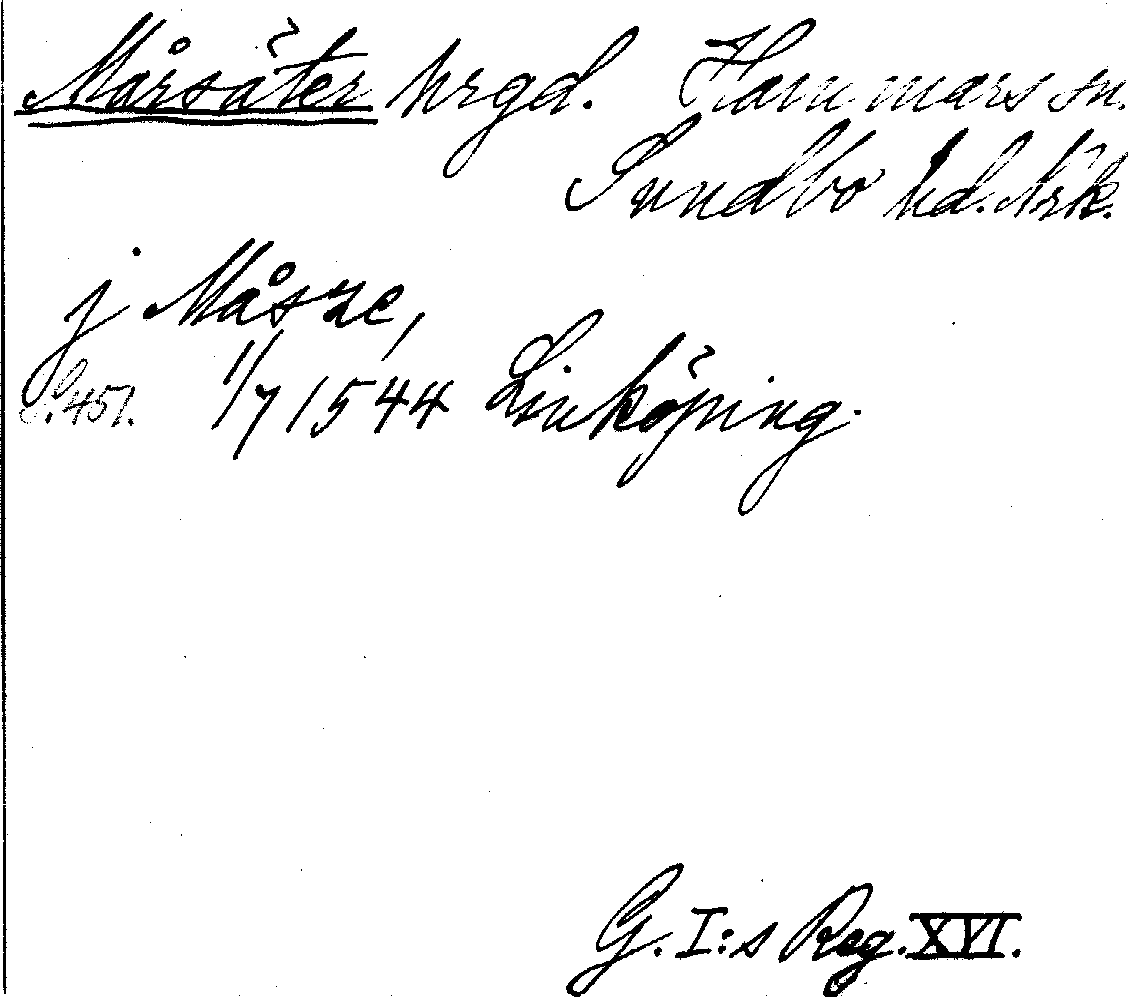 Mårsäter hrgd. Hammars sn.
Sundbo hd. Nrk.
j Måsze,
S. 451. 1/7 1544 Linköping.
G. I:s Reg. XVI.